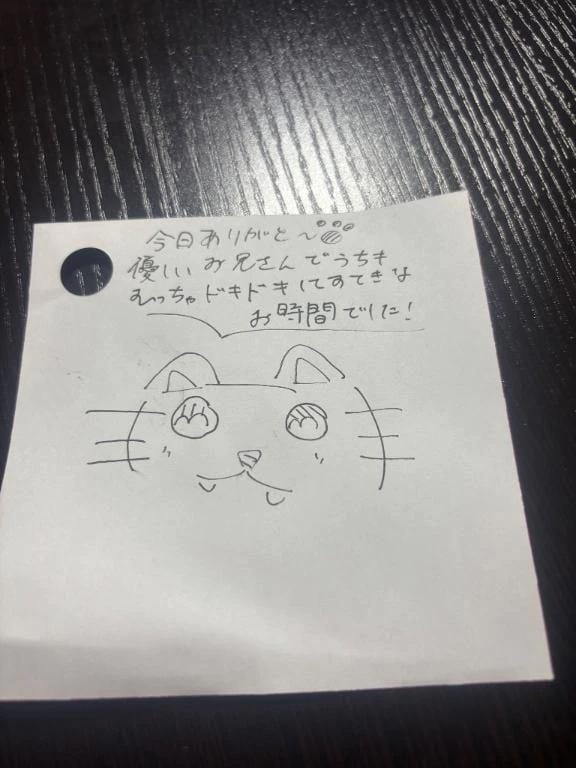 今日ありがと〜
優しいお兄さんでうちも
むっちゃドキドキしてすてきな
お時間でした!